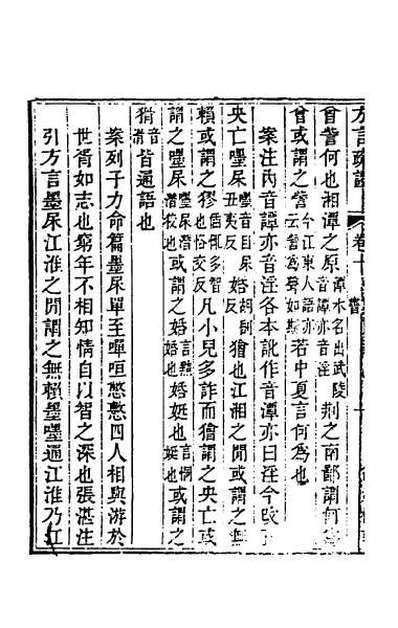 方言疏證 卷十
曾訾何也湘潭之原潭水名出武陵音譚亦音淫荆之南鄙謂何爲
曾或謂之訾今江東人語亦云訾爲聲如斯若中夏言何爲也
案注內音譚亦音淫各本訛作音潭亦曰淫今改
央亡嚜尿嚜音目尿丑夷反姡胡刮反獪也江湘之閒謂之無
賴或謂之㺒多智也恪交反凡小兒多詐而獪謂之央亡或
謂之嚜尿嚜尿潛潛狡也或謂之姡言黠姡也或謂之姡娗也或謂之
猾音滑皆通語也
案列子力命篇墨尿單至嘽咺憋懯四人相與游於
世胥如志也窮年不相知情自以智之深也張湛注
引方言墨尿江淮之閒謂之無賴墨嚜通江淮乃江